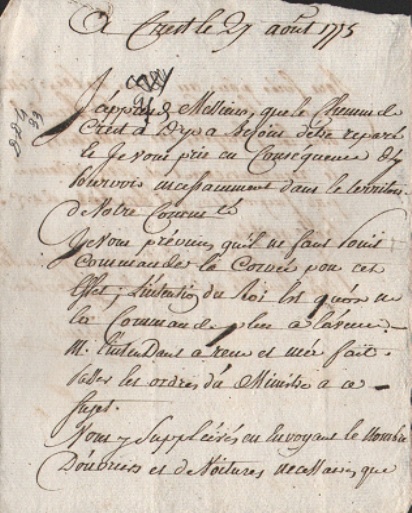 A Crest le 27 août 1775
J'apprens Messieurs, que le Chemin de
Crest a Dye a besoin d'etre reparé
Et Je vous prie en Conséquence d'y
pourvoir incessamment dans le territoire
de Votre Commté
Je Vous préviens qu'il ne faut point
Commander la Corvée pour cet
effet; L'intention du Roi Est qu'on ne
la Commande plus a l'avenir
M. L'intendant a reçu et m'a fait
passer les ordres du Ministre a ce
sujet.
Vous y Suppléerés en Envoyant le Nombre
D'ouvriers et de Voitures necessaires, que